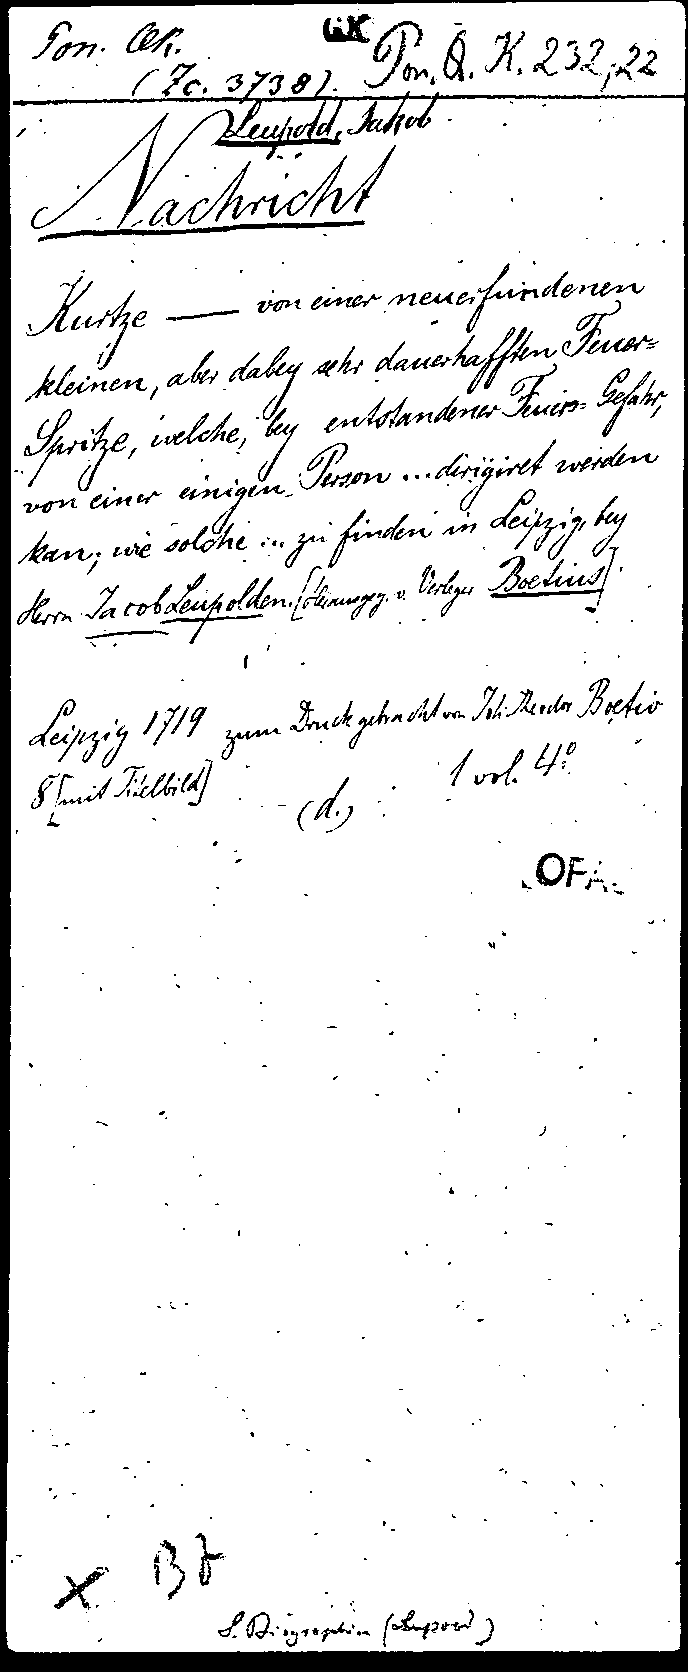 Pon. Qk. GK
(Zc. 3738). Pon. Q. K. 232,22
Leupold, Jakob
Nachricht
Kurtze — von einer neuerfundenen
kleinen, aber dabey sehr dauerhafften Feuer=
Spritze, welche, bey entstandener Feuers= Gefahr,
von einer einigen Person ... dirigiret werden
kan; wie solche ... zu finden in Leipzig, bey
Herrn Jacob Leupolden. [Herausgeg. v. Verleger Boetius].
Leipzig 1719 zum Druck gebracht von Joh. Theodor Boetio
8 [mit Titelbild] 1 vol. 4°
(d.)
OF
x B
S. Biographien (Leupold)